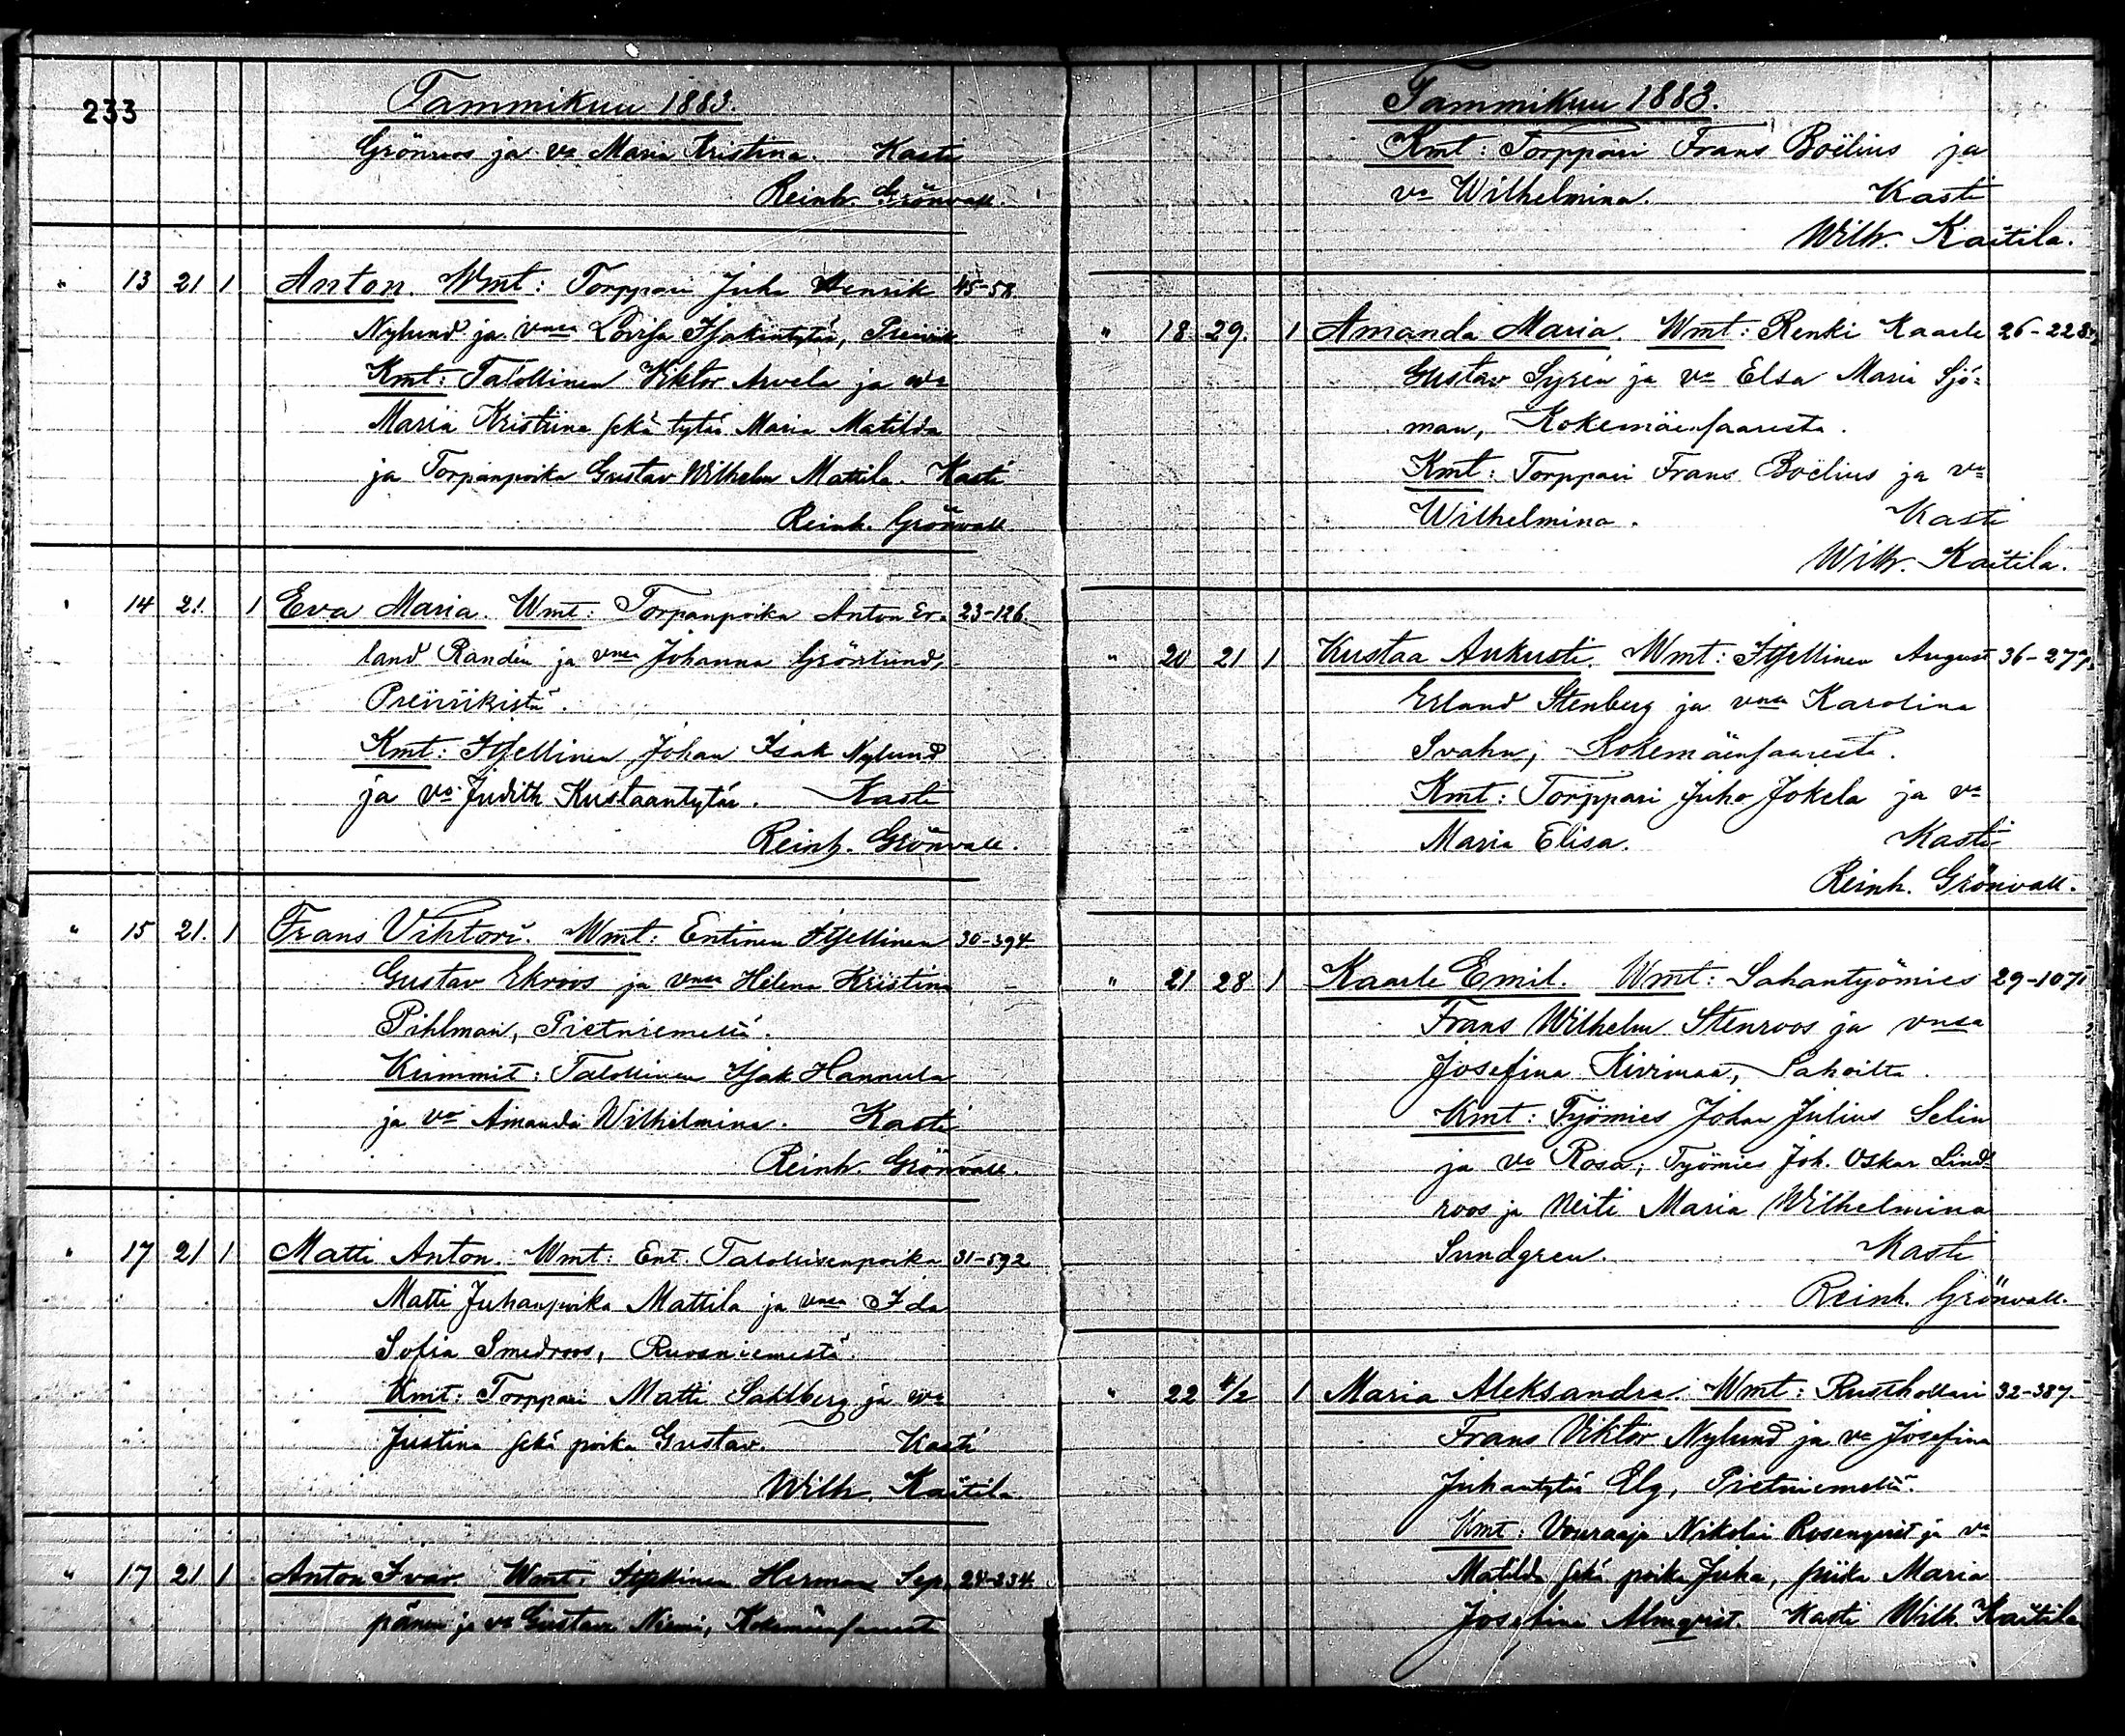 233
Tammikuu 1883.
Grönroos ja va Maria Kristina. Kasti
Reinh. Grönvall.
" 13 21 1 Anton. Wmt: Torppari Juho Henrik 45-58
Nylund ja vmsa Lovisa Isakintytär, Preiviik
Kmt: Talollinen Viktor Arvela ja wa
Maria Kristiina sekä tytär Maria Matilda
ja Torpanpoika Gustav Wilhelm Mattila. Kasti
Reinh. Grönvall.
" 14 21. 1 Eva Maria. Wmt: Torpanpoika Anton Er- 23-126.
land Randén ja vmsa Johanna Grönlund,
Preiviikistä.
Kmt: Itsellinen Johan Isak Nylund
ja va Judith Kustaantytär. Kasti
Reinh. Grönvall.
" 15 21. 1 Frans Vihtori. Wmt: Entinen Itsellinen 30-394.
Gustav Ekroos ja vmsa Helena Kristina
Pihlman, Pietniemeltä.
Kummit: Talollinen Isak Hannula
ja va Amanda Wilhelmina. Kasti
Reinh. Grönvall.
" 17 21 1 Matti Anton. Wmt: Ent. Talollisenpoika 31-592
Matti Juhanpoika Mattila ja vmsa Ida
Sofia Smedroos, Ruosniemestä.
Kmt: Torppari Matti Sahlberg ja wa
Justina sekä poika Gustav. Kasti
Wilh. Kaitila.
" 17 21 1 Anton Ivar. Wmt: Itsellinen Herman Sep- 24-234.
pänen ja va Gustava Niemi, Kokemäensaaresta
Tammikuu 1883.
Kmt: Torppari Frans Boëlius ja
va Wilhelmina. Kasti
Wilh. Kaitila.
" 18 29. 1 Amanda Maria. Wmt: Renki Kaarle 26-228
Gustav Syrén ja va Elsa Maria Sjö-
man, Kokemäensaaresta.
Kmt: Torppari Frans Boëlius ja va
Wilhelmina. Kasti
Wilh. Kaitila.
" 20 21 1 Kustaa Aukusti. Wmt: Itsellinen August 36-277
Erland Stenberg ja vmsa Karolina
Svahn, Kokemäensaaresta.
Kmt: Torppari Juho Jokela ja va
Maria Elisa. Kasti
Reinh. Grönvall.
" 21 28 1 Kaarle Emil. Wmt: Sahantyömies 29-1071
Frans Wilhelm Stenroos ja vmsa
Josefina Kivimaa, Sahoilta.
Kmt: Työmies Johan Julius Selin
ja va Rosa; Työmies Joh. Oskar Lind-
roos ja Neiti Maria Wilhelmina
Sundgren. Kasti
Reinh. Grönvall.
" 22 4/2 1 Maria Aleksandra. Wmt: Rusthollari 32-387.
Frans Viktor Nylund ja va Josefina
Juhantytär Elg, Pietniemeltä.
Kmt: Vouraaja Nikolai Rosenqvist ja va
Matilda sekä poika Juha, piika Maria
Josefina Almqvist. Kasti Wilh. Kaitila